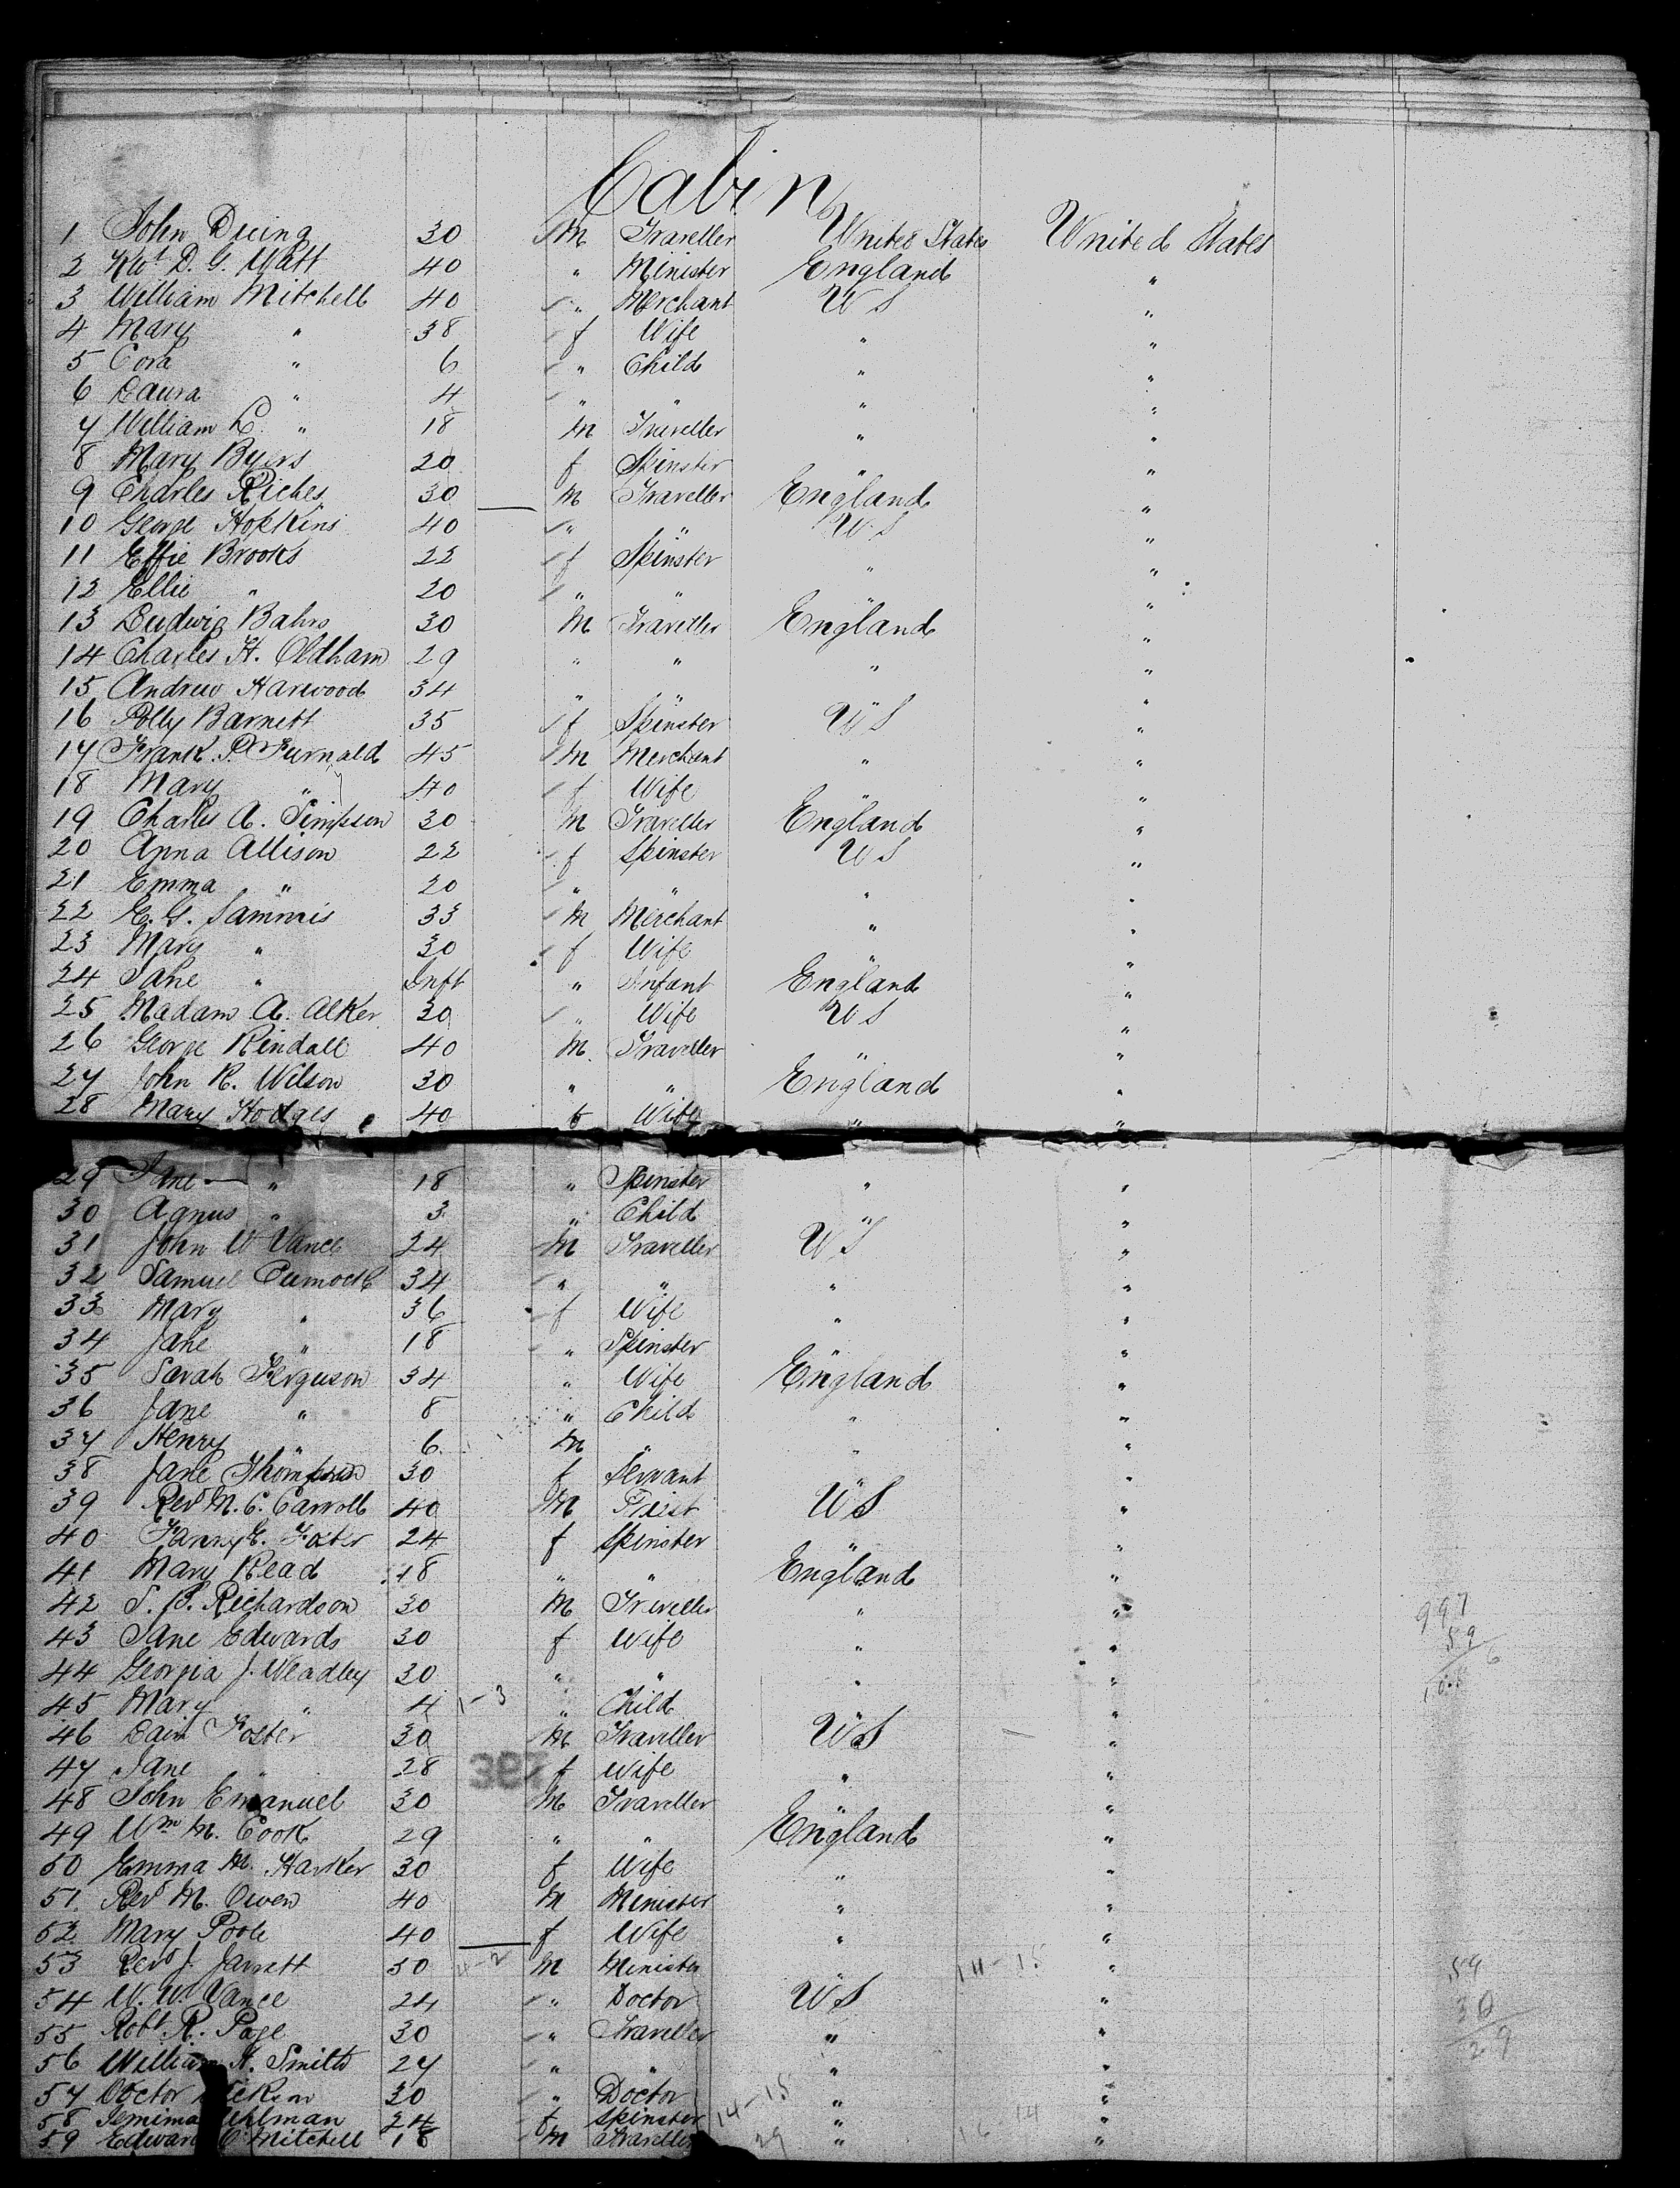 Cabin
1 John Dicing 30 M Traveller United States United States
2 Revd D. G. Watt 40 " Minister England "
3 William Mitchell 40 " Merchant U S "
4 Mary " 38 f Wife " "
5 Cora " 6 " Child " "
6 Laura " 4 " " " "
7 William L. " 18 M Traveller " "
8 Mary Byers 20 f Spinster " "
9 Charles Riches 30 M Traveller England "
10 George Hopkins 40 " " U S "
11 Effie Brooks 22 f Spinster " "
12 Ellie " 20 " " " "
13 Ludwig Bahrs 30 M Traveller England "
14 Charles H. Oldham 29 " " " "
15 Andrew Harwood 34 " " " "
16 Polly Barnett 35 f Spinster U S "
17 Frank. P. Furnald 45 M Merchant " "
18 Mary " 40 f Wife " "
19 Charles A. Simpson 30 M Traveller England "
20 Anna Allison 22 f Spinster U S "
21 Emma " 20 " " " "
22 E. G. Sammis 33 M Merchant " "
23 Mary " 30 f Wife " "
24 Jane " Inft " Infant England "
25 Madam A. Alker 30 " Wife U S "
26 George Kendall 40 M. Traveller " "
27 John R. Wilson 30 " " England "
28 Mary Hodges 40 f Wife " "
29 Jane " 18 " Spinster " "
30 Agnus " 3 " Child " "
31 John W Vance 24 M Traveller U S "
32 Samuel 34 " " " "
33 Mary " 36 f Wife " "
34 Jane " 18 " Spinster " "
35 Sarah Ferguson 34 " Wife England "
36 Jane " 8 " Child " "
37 Henry " 6 M " " "
38 Jane Thompson 30 f Servant " "
39 Revd M. C. Carroll 40 M Priest U S "
40 Fanny E. Foster 24 f Spinster " "
41 Mary Read 18 " " England "
42 S. B. Richardson 30 M Traveller " "
43 Jane Edwards 30 f Wife " "
44 Georgia J. Weadley 30 " " " "
45 Mary " 4 1-3 " Child " "
46 Foster 30 M Traveller U S "
47 Jane " 28 f Wife " "
48 John Emanuel 30 M Traveller " "
49 Wm M. Cook 29 " " England "
50 Emma M. Harker 30 f Wife " "
51 Revd M. Owen 40 M Minister " "
52 Mary Poole 40 f Wife " "
53 Revd J. Jarrett 50 M Minister " 14-15 "
54 W. W. Vance 24 " Doctor U S "
55 Robt R. Page 30 " Traveller " "
56 William H. Smith 27 " " " "
57 Doctor 30 " Doctor " "
58 Jemima 24 f Spinster 14-15 " 14 "
59 Edward C. Mitchell 18 M Traveller 29 " 16 "
997
59
59
30
29